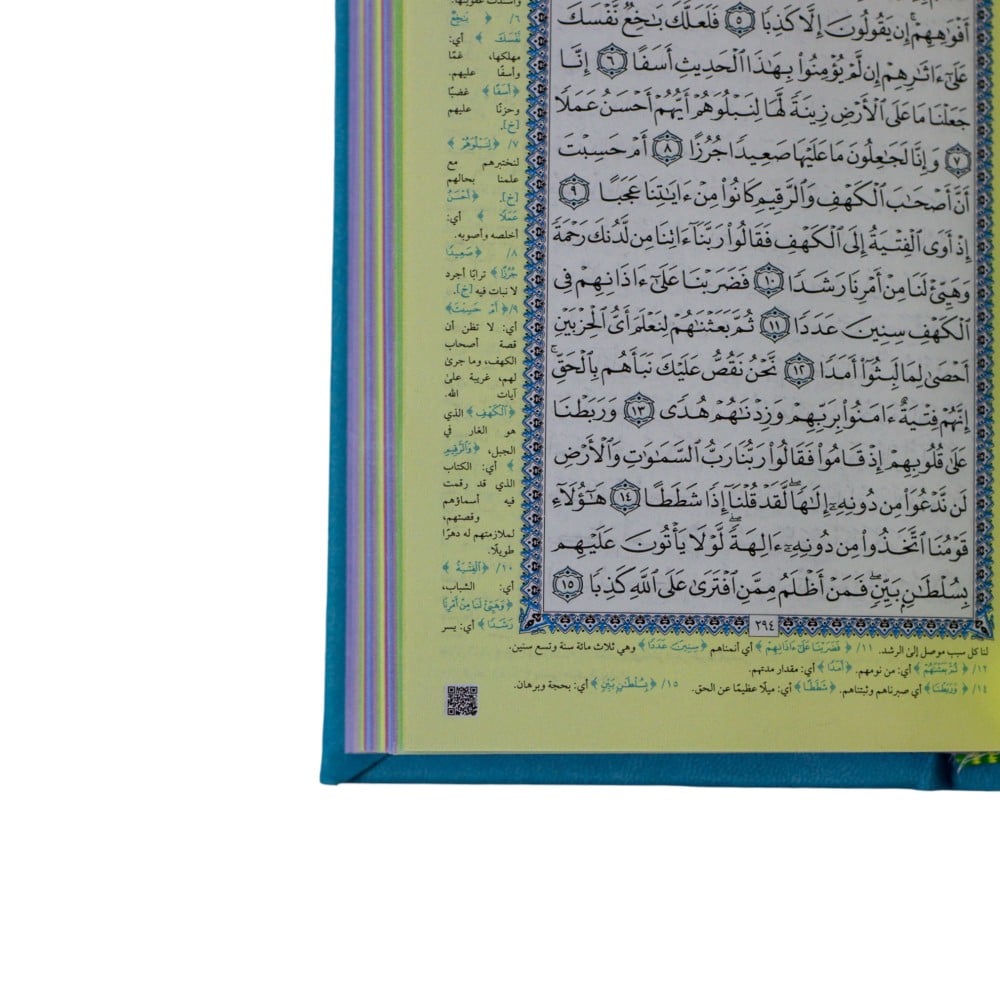 أَفْوَٰهِهِمْ ۚ إِن يَقُولُونَ إِلَّا كَذِبًا ٥ فَلَعَلَّكَ بَـٰخِعٌ نَّفْسَكَ
عَلَىٰٓ ءَاثَـٰرِهِمْ إِن لَّمْ يُؤْمِنُوا۟ بِهَـٰذَا ٱلْحَدِيثِ أَسَفًا ٦ إِنَّا
جَعَلْنَا مَا عَلَى ٱلْأَرْضِ زِينَةً لَّهَا لِنَبْلُوَهُمْ أَيُّهُمْ أَحْسَنُ عَمَلًا
٧ وَإِنَّا لَجَـٰعِلُونَ مَا عَلَيْهَا صَعِيدًا جُرُزًا ٨ أَمْ حَسِبْتَ
أَنَّ أَصْحَـٰبَ ٱلْكَهْفِ وَٱلرَّقِيمِ كَانُوا۟ مِنْ ءَايَـٰتِنَا عَجَبًا ٩
إِذْ أَوَى ٱلْفِتْيَةُ إِلَى ٱلْكَهْفِ فَقَالُوا۟ رَبَّنَآ ءَاتِنَا مِن لَّدُنكَ رَحْمَةً
وَهَيِّئْ لَنَا مِنْ أَمْرِنَا رَشَدًا ١٠ فَضَرَبْنَا عَلَىٰٓ ءَاذَانِهِمْ فِى
ٱلْكَهْفِ سِنِينَ عَدَدًا ١١ ثُمَّ بَعَثْنَـٰهُمْ لِنَعْلَمَ أَىُّ ٱلْحِزْبَيْنِ
أَحْصَىٰ لِمَا لَبِثُوٓا۟ أَمَدًا ١٢ نَّحْنُ نَقُصُّ عَلَيْكَ نَبَأَهُم بِٱلْحَقِّ ۚ
إِنَّهُمْ فِتْيَةٌ ءَامَنُوا۟ بِرَبِّهِمْ وَزِدْنَـٰهُمْ هُدًى ١٣ وَرَبَطْنَا
عَلَىٰ قُلُوبِهِمْ إِذْ قَامُوا۟ فَقَالُوا۟ رَبُّنَا رَبُّ ٱلسَّمَـٰوَٰتِ وَٱلْأَرْضِ
لَن نَّدْعُوَا۟ مِن دُونِهِۦٓ إِلَـٰهًا ۖ لَّقَدْ قُلْنَآ إِذًا شَطَطًا ١٤ هَـٰٓؤُلَآءِ
قَوْمُنَا ٱتَّخَذُوا۟ مِن دُونِهِۦٓ ءَالِهَةً ۖ لَّوْلَا يَأْتُونَ عَلَيْهِم
بِسُلْطَـٰنٍۭ بَيِّنٍ ۖ فَمَنْ أَظْلَمُ مِمَّنِ ٱفْتَرَىٰ عَلَى ٱللَّهِ كَذِبًا ١٥
٢٩٤
٦/ ﴿ بَـٰخِعٌ
نَّفْسَكَ ﴾ أي:
مهلكها، غمًا
وأسفًا عليهم.
﴿أَسَفًا﴾ غضبًا
وحزنًا عليهم
[خ].
٧/ ﴿لِنَبْلُوَهُمْ﴾
لنختبرهم مع
علمنا بحالهم
[خ]. ﴿أَحْسَنُ
عَمَلًا ﴾ أي:
أخلصه وأصوبه.
٨/ ﴿صَعِيدًا
جُرُزًا﴾ ترابًا أجرد
لا نبات فيه [خ].
٩/ ﴿أَمْ حَسِبْتَ﴾
أي: لا تظن أن
قصة أصحاب
الكهف، وما جرى
لهم، غريبة على
آيات الله.
﴿ٱلْكَهْفِ﴾ الذي
هو الغار في
الجبل، ﴿وَٱلرَّقِيمِ
﴾ أي: الكتاب
الذي قد رقمت
فيه أسماؤهم
وقصتهم،
لملازمتهم له دهرًا
طويلًا.
١٠/ ﴿ٱلْفِتْيَةُ ﴾
أي: الشباب،
﴿وَهَيِّئْ لَنَا مِنْ أَمْرِنَا
رَشَدًا ﴾ أي: يسر
لنا كل سبب موصل إلى الرشد. ١١/ ﴿ فَضَرَبْنَا عَلَىٰٓ ءَاذَانِهِمْ ﴾ أي أنمناهم ﴿سِنِينَ عَدَدًا ﴾ وهي ثلاث مائة سنة وتسع سنين.
١٢/ ﴿ ثُمَّ بَعَثْنَـٰهُمْ ﴾ أي: من نومهم. ﴿أَمَدًا﴾ أي: مقدار مدتهم.
١٤/ ﴿ وَرَبَطْنَا﴾ أي صبرناهم وثبتناهم. ﴿شَطَطًا﴾ أي: ميلًا عظيمًا عن الحق. ١٥/ ﴿بِسُلْطَـٰنٍۭ بَيِّنٍ ﴾ أي: بحجة وبرهان.